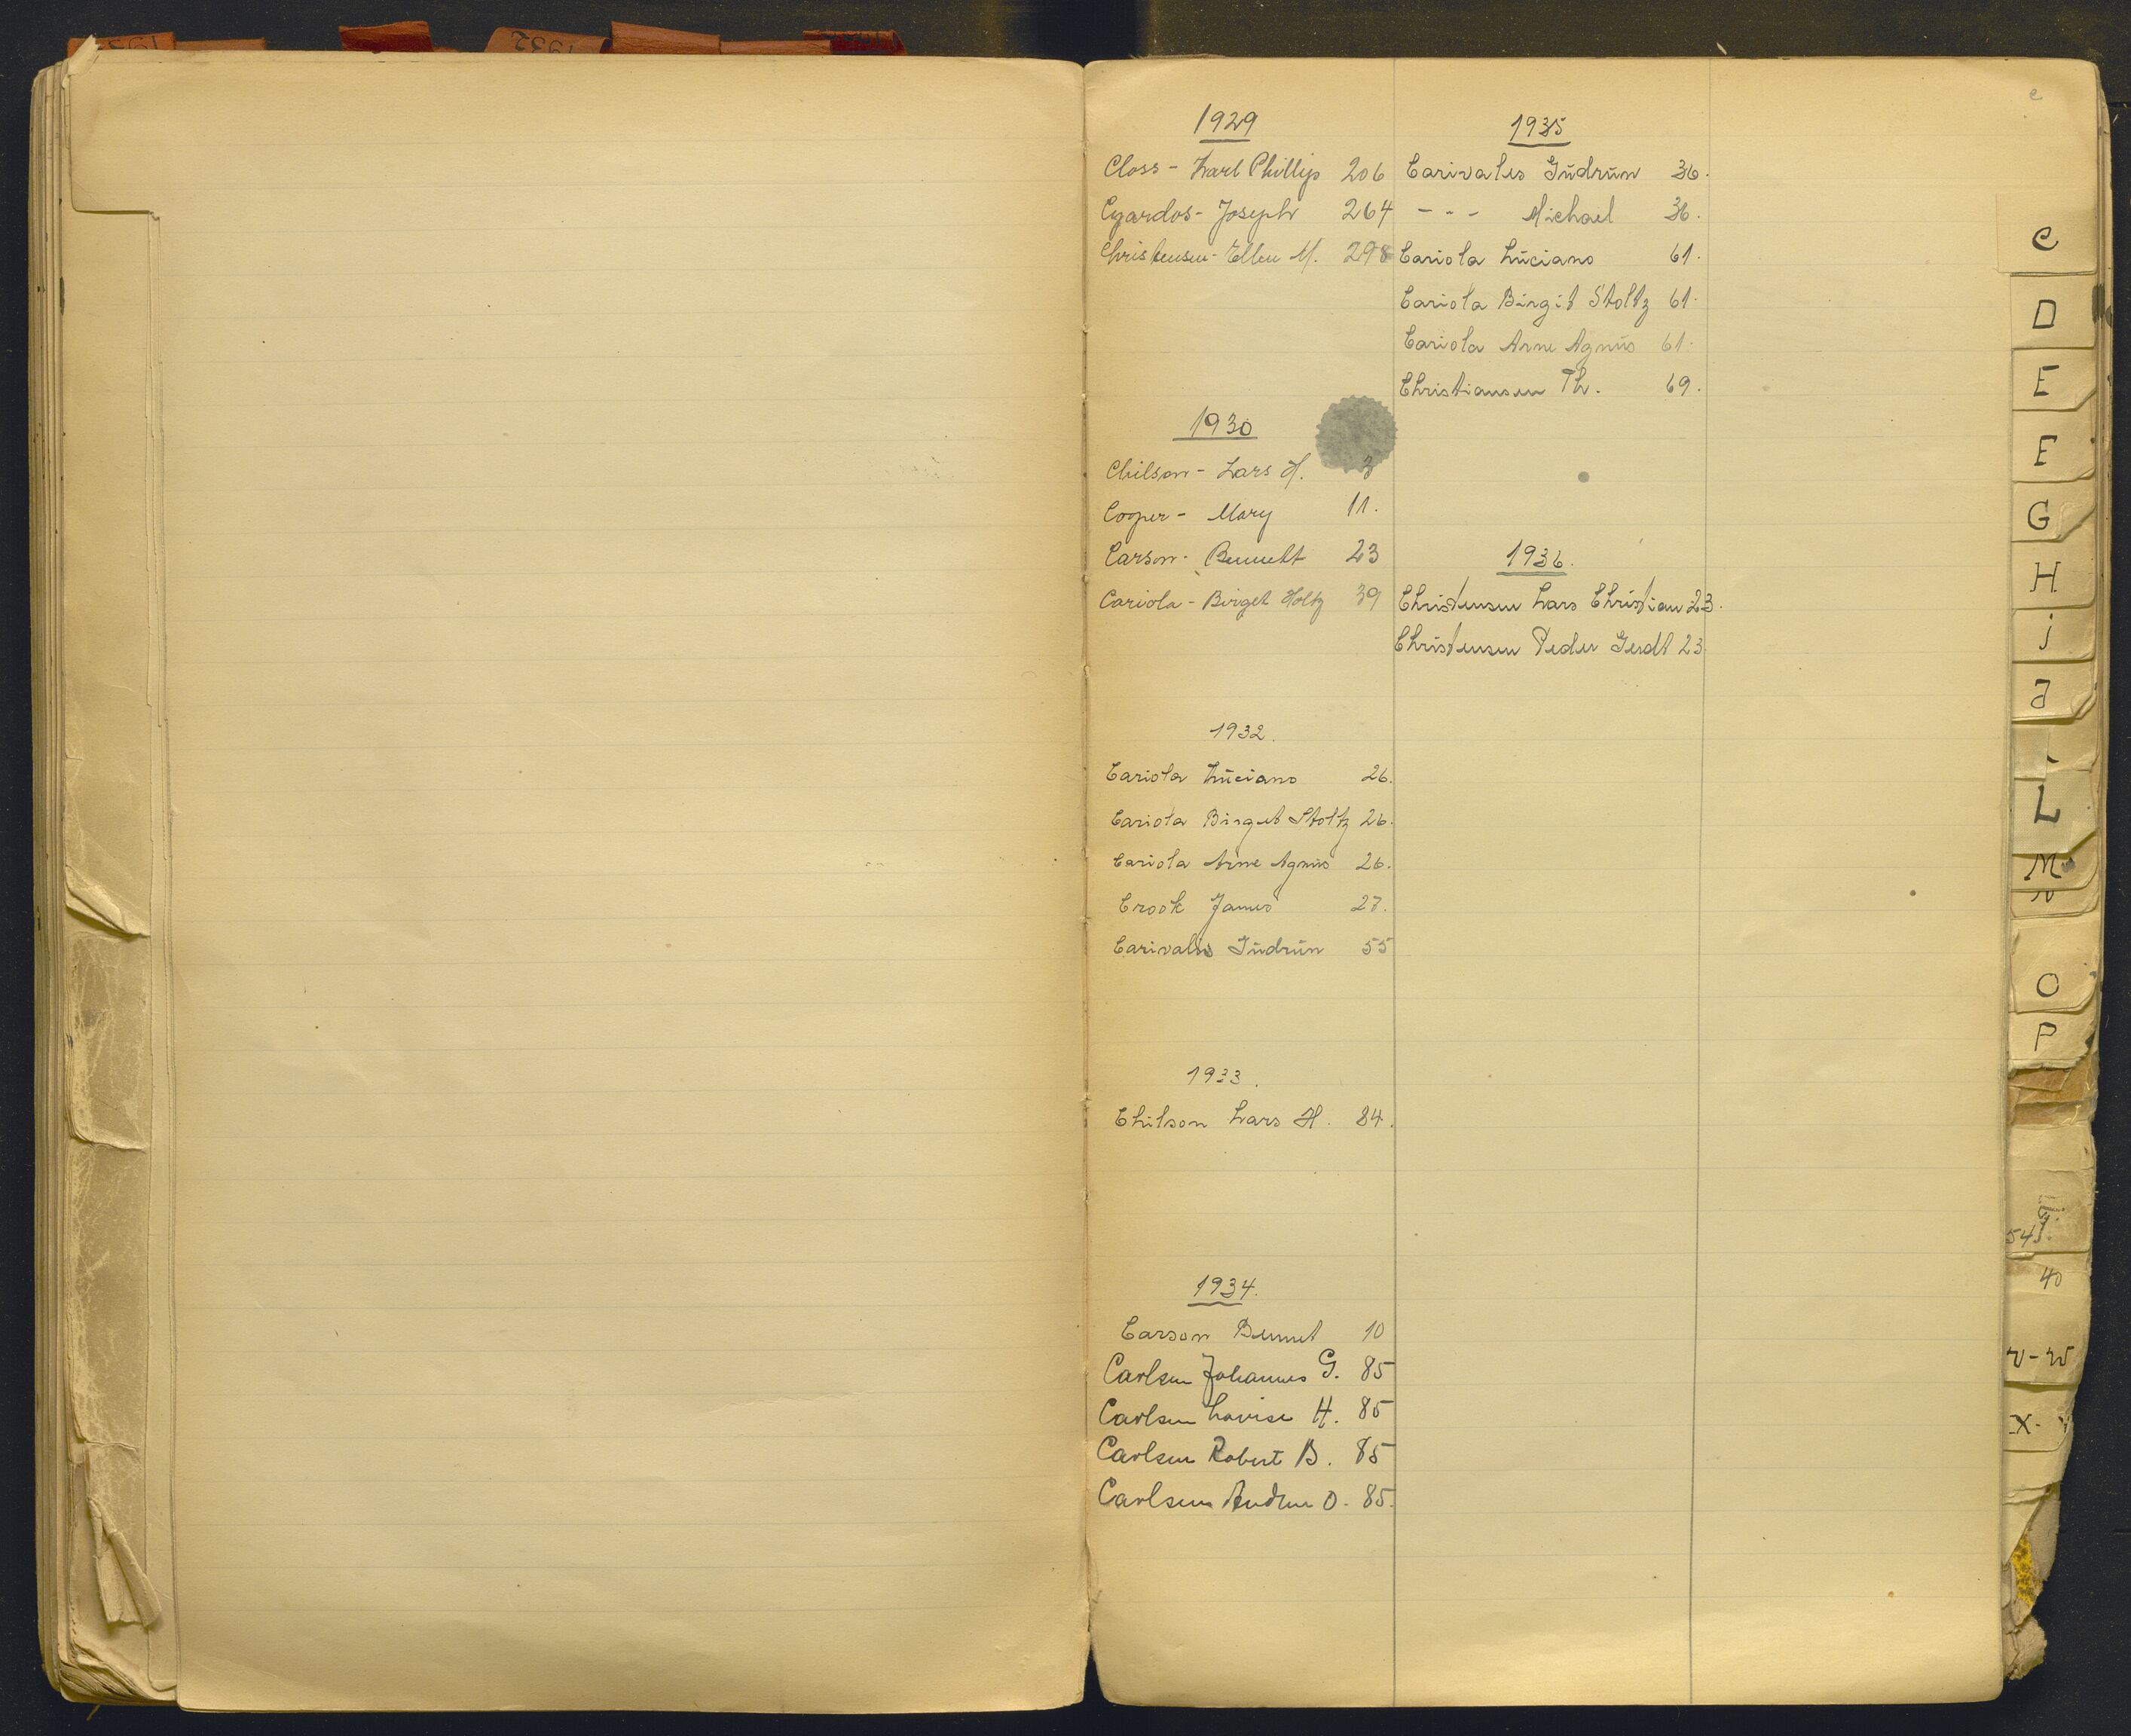 1929
Closs - Karl Phillip 206
Cyardos - Joseph 264
Christensen - Ellen M. 298
1930
Chilson - Lars H. 3
Cooper - Mary 11.
Carson - Bennett 23
Cariola - Birget Holtz 39
1932.
Cariola Luciano 26.
Cariola Birget Stoltz 26.
Cariola Arne Agnus 26.
Crook James 27.
Carivalis Gudrun 55
1933.
Chilson Lars H. 84.
1934.
Carson Bennet 10
Carlsen Johannes G. 85
Carlsen Lovise H. 85
Carlsen Robert B. 85
Carlsen O. 85.
1935
Carivales Gudrun 36.
- - - Michael 36.
Cariola Luciano 61.
Cariola Birgit Stoltz 61.
Cariola Arne Agnus 61.
Christiansen Th. 69.
1936.
Christensen Lars Christian 23.
Christensen Peder Gerdt 23.
c
C
D
E
F
G
H
j
J
L
M
N
O
P
40
V-W
X-
1932